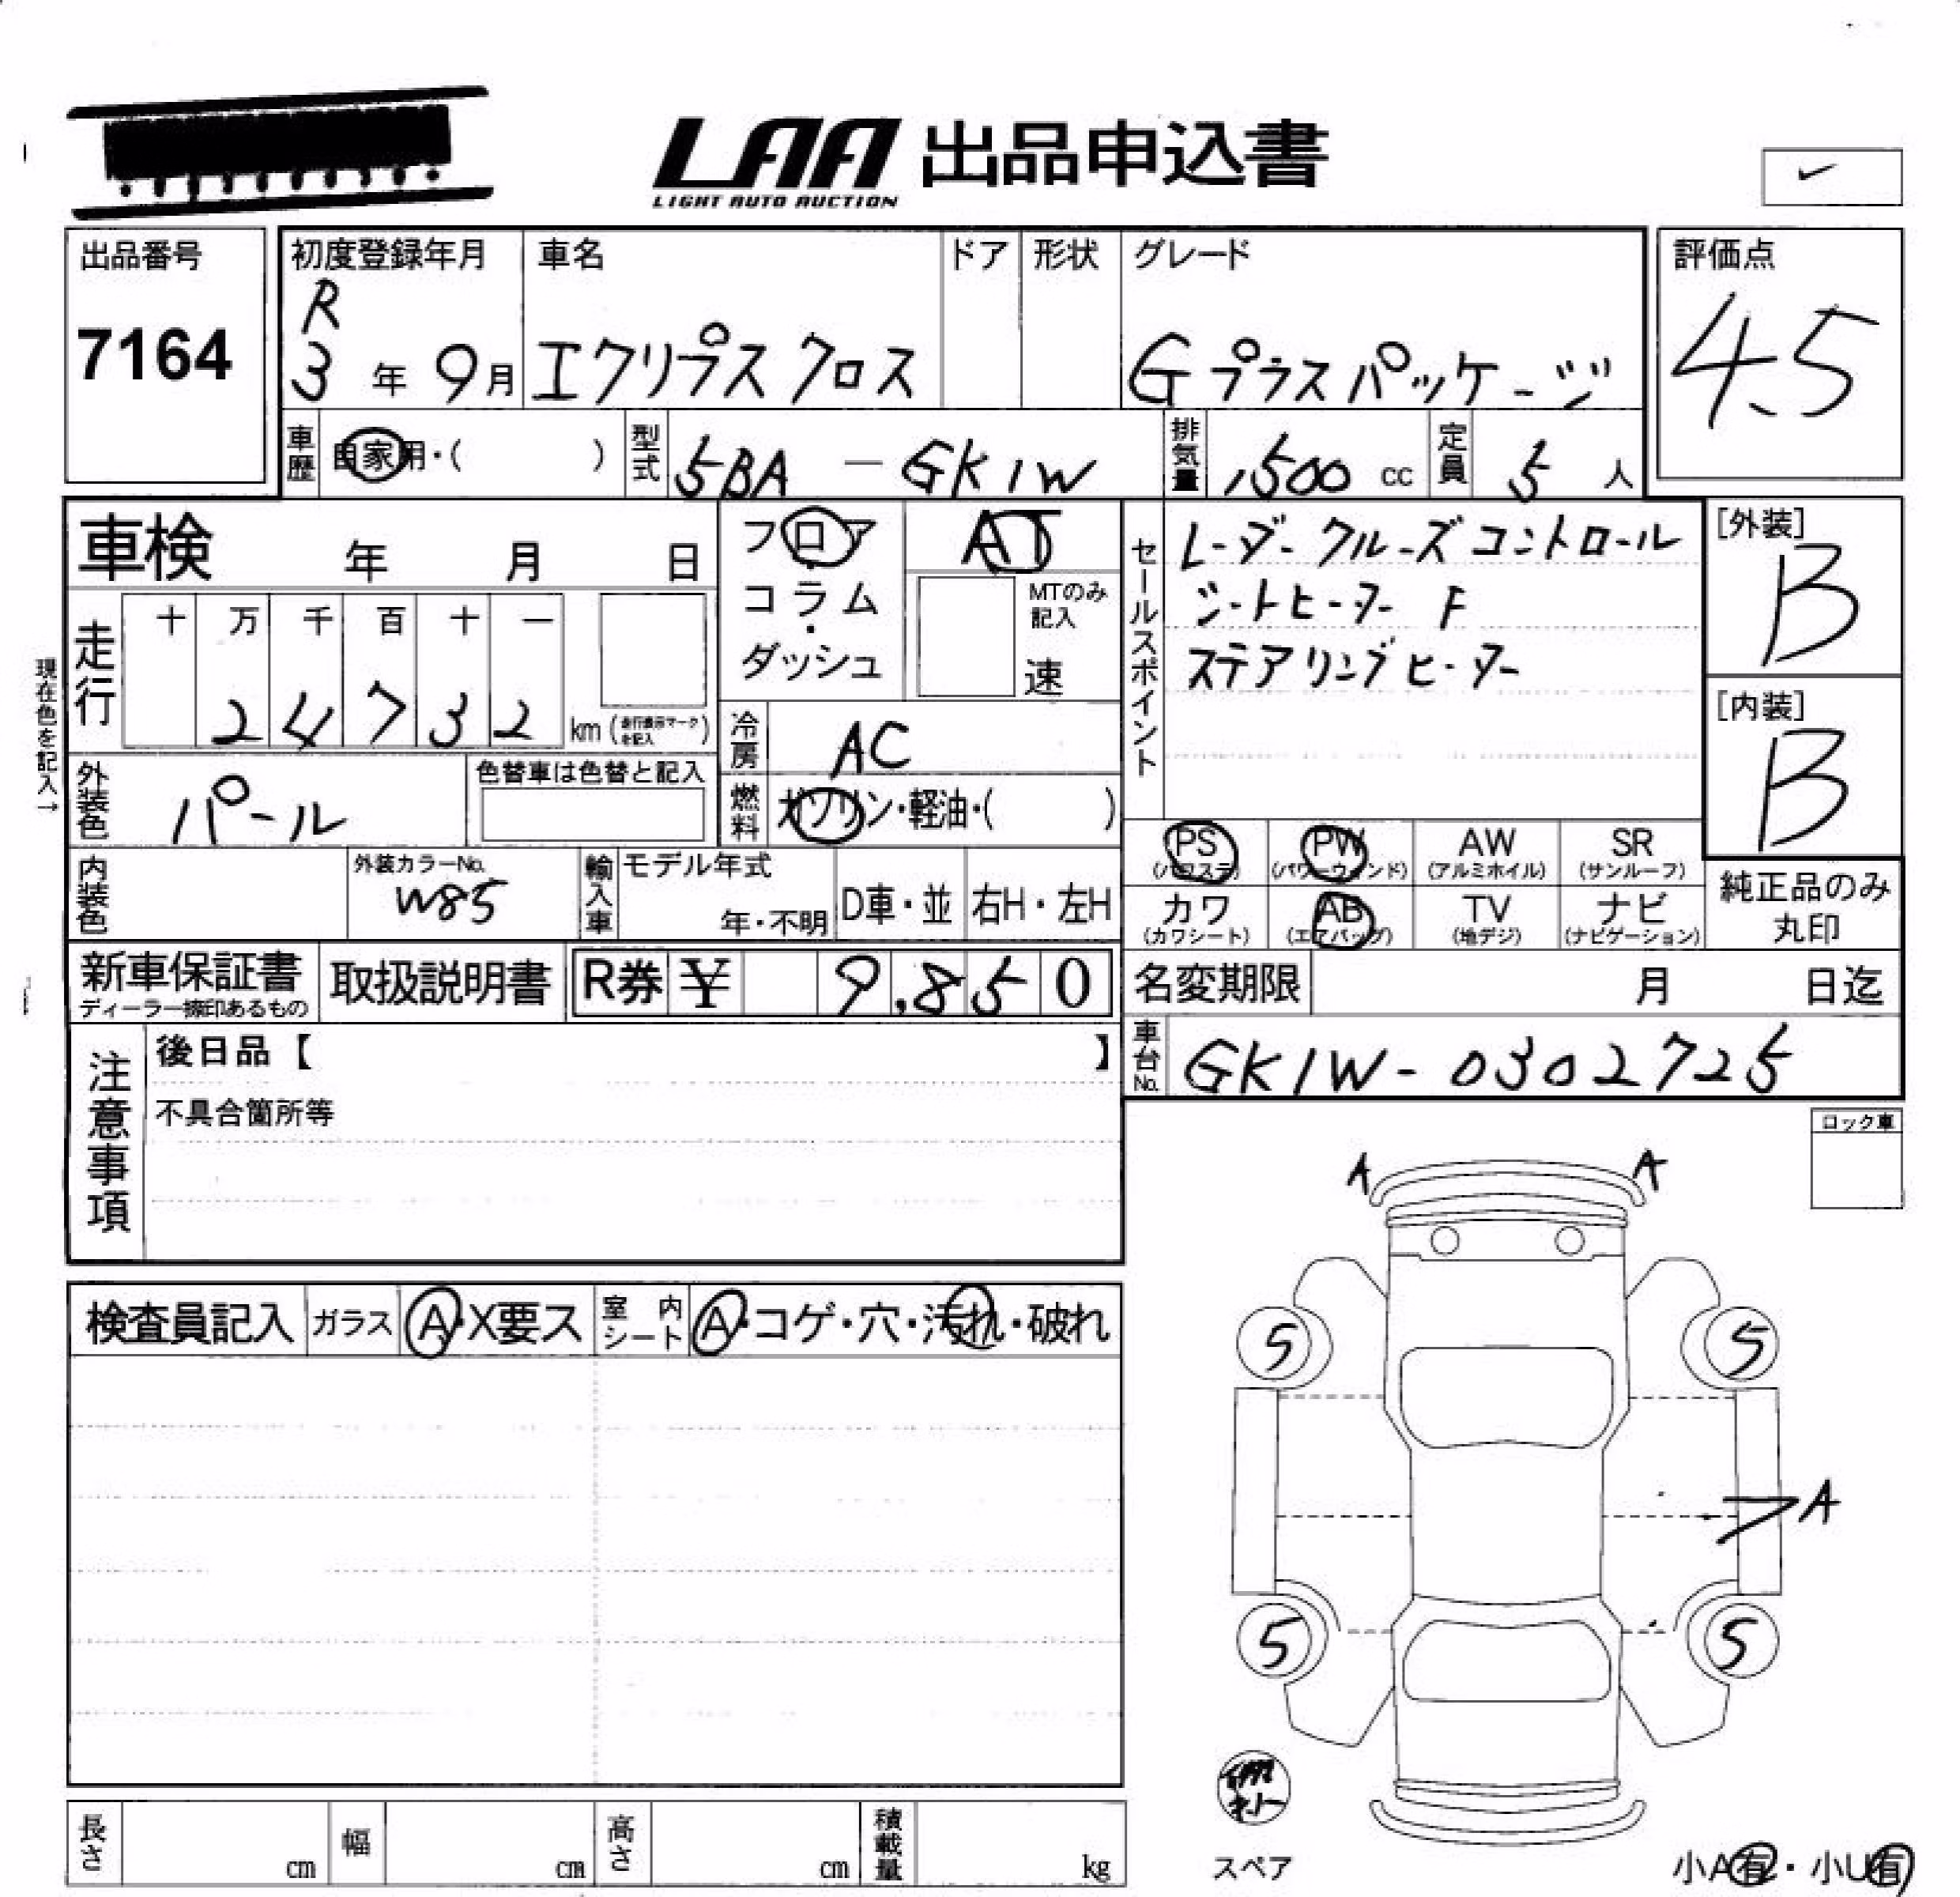 LAA 出品申込書
LIGHT AUTO AUCTION
出品番号
7164
初度登録年月
R
3年9月
車名
エクリプス クロス
ドア
形状
グレード
Gプラスパッケージ
評価点
4.5
車歴
自家用・( )
型式
5BA - GK1W
排気量
1500 cc
定員
5 人
車検 年 月 日
フロア
・
コラム
・
ダッシュ
AT
MTのみ
記入
速
セールスポイント
レーダークルーズコントロール
シートヒーター F
ステアリングヒーター
[外装]
B
[内装]
B
現在色を記入→
走行
十 万 千 百 十 一
2 4 7 3 2
km (走行表示マークを記入)
冷房
AC
外装色
パール
色替車は色替と記入
燃料
ガソリン・軽油・( )
PS
(パワステ)
PW
(パワーウィンド)
AW
(アルミホイル)
SR
(サンルーフ)
カワ
(カワシート)
AB
(エアバッグ)
TV
(地デジ)
ナビ
(ナビゲーション)
純正品のみ
丸印
内装色
外装カラーNo.
W85
輸入車
モデル年式
年・不明
D車・並
右H・左H
新車保証書
ディーラー捺印あるもの
取扱説明書
R券 ¥ 9,850
名変期限 月 日迄
車台No.
GK1W-0302725
注意事項
後日品【 】
不具合箇所等
ロック車
A A
検査員記入
ガラス
A・X要ス
室内シート
A・コゲ・穴・汚れ・破れ
5 5
A
5 5
スペア
小A有・小U有
長さ cm
幅 cm
高さ cm
積載量 kg